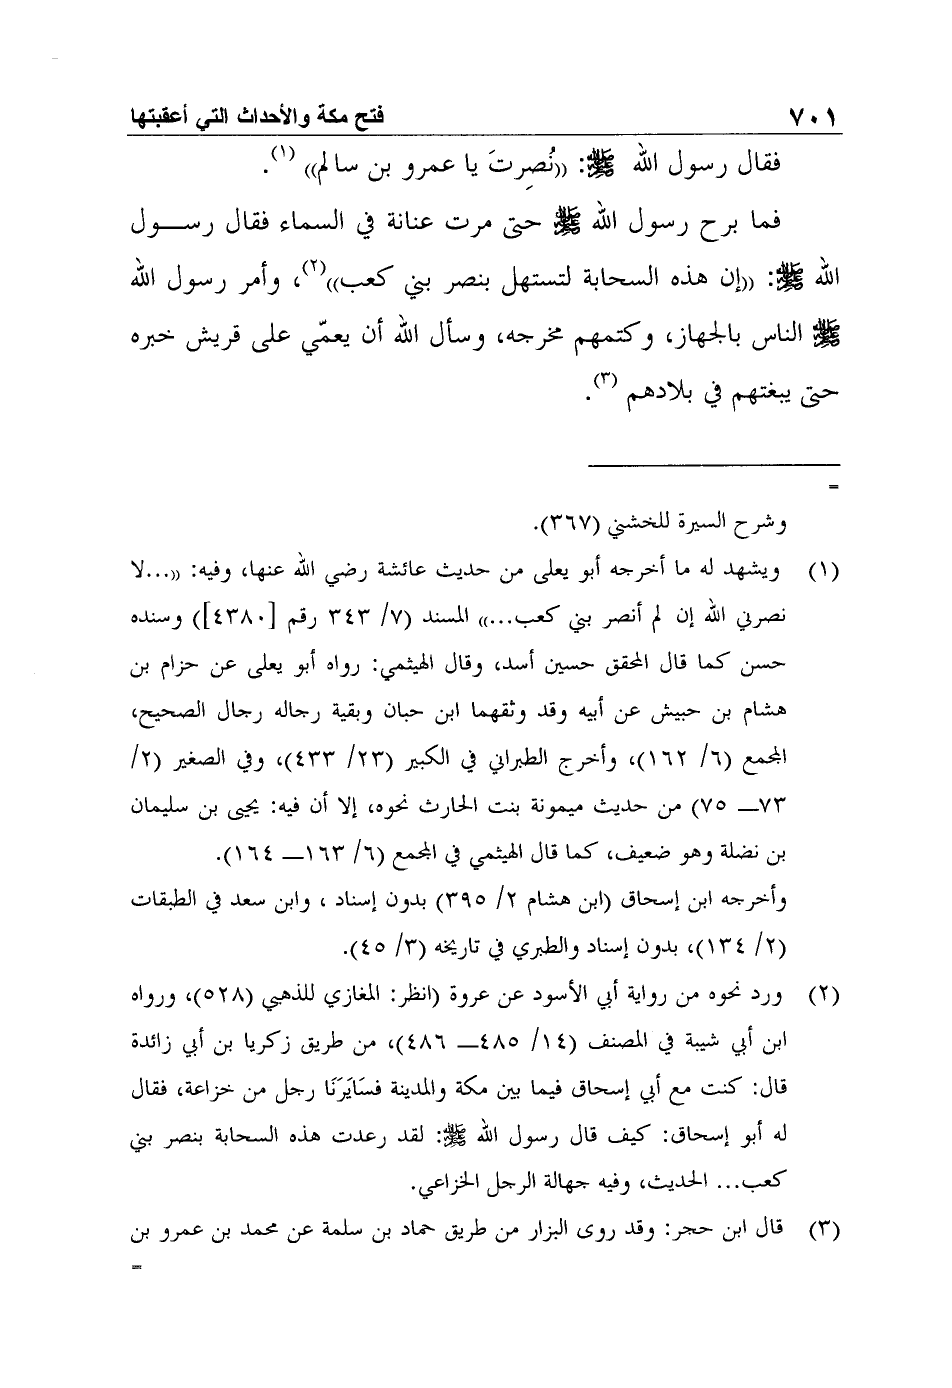 ٧٠١ فتح مكة والأحداث التي أعقبتها
فقال رسول الله ﷺ: ((نُصِرتَ يا عمرو بن سالم)) (١).
فما برح رسول الله ﷺ حتى مرت عنانة في السماء فقال رســول
الله ﷺ: ((إن هذه السحابة لتستهل بنصر بني كعب))(٢)، وأمر رسول الله
ﷺ الناس بالجهاز، وكتمهم مخرجه، وسأل الله أن يعمّي على قريش خبره
حتى يبغتهم في بلادهم (٣).
=
وشرح السيرة للخشني (٣٦٧).
(١) ويشهد له ما أخرجه أبو يعلى من حديث عائشة رضي الله عنها، وفيه: ((...لا
نصرني الله إن لم أنصر بني كعب...)) المسند (٧/ ٣٤٣ رقم [٤٣٨٠]) وسنده
حسن كما قال المحقق حسين أسد، وقال الهيثمي: رواه أبو يعلى عن حزام بن
هشام بن حبيش عن أبيه وقد وثقهما ابن حبان وبقية رجاله رجال الصحيح،
المجمع (٦/ ١٦٢)، وأخرج الطبراني في الكبير (٢٣/ ٤٣٣)، وفي الصغير (٢/
٧٣ــ ٧٥) من حديث ميمونة بنت الحارث نحوه، إلا أن فيه: يحيى بن سليمان
بن نضلة وهو ضعيف، كما قال الهيثمي في المجمع (٦/ ١٦٣ــ ١٦٤).
وأخرجه ابن إسحاق (ابن هشام ٢/ ٣٩٥) بدون إسناد ، وابن سعد في الطبقات
(٢/ ١٣٤)، بدون إسناد والطبري في تاريخه (٣/ ٤٥).
(٢) ورد نحوه من رواية أبي الأسود عن عروة (انظر: المغازي للذهبي (٥٢٨)، ورواه
ابن أبي شيبة في المصنف (١٤/ ٤٨٥ــ ٤٨٦)، من طريق زكريا بن أبي زائدة
قال: كنت مع أبي إسحاق فيما بين مكة والمدينة فسَايَرَنَا رجل من خزاعة، فقال
له أبو إسحاق: كيف قال رسول الله ﷺ: لقد رعدت هذه السحابة بنصر بني
كعب... الحديث، وفيه جهالة الرجل الخزاعي.
(٣) قال ابن حجر: وقد روى البزار من طريق حماد بن سلمة عن محمد بن عمرو بن
=